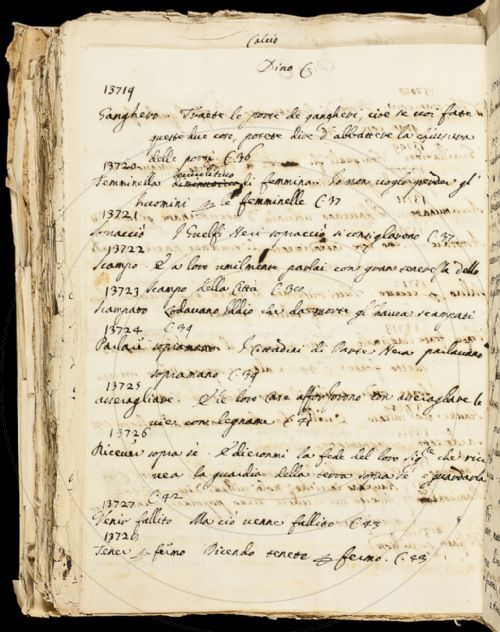 Calcio
Dino C
13719
Ganghero Traete le porte de gangheri, cioè se uoi fate
queste due cose, potete dire d'abbattere la chiusura
delle porti C.36
13720 diminutiuo
Femminella di femmina. Io non uoglio perder gl'
huomini le femminelle C.37
13721
I Guelfi Neri si consigliorono C.37
13722
Scampo. E a loro umilmente parlai con gran tenerezza dello
13723 scampo della Città C.39
Scampato Lodauano Iddio che da morte gl'hauea scampati
13724 C.39
Parlare sopramano. I Cittadini di Parte Nera parlauano
sopramano C.39
13725
asserragliare. E le loro case afforzorono con asserragliare le
uie con legname C.41
13726
Riceuer sopra sè. E dieronmi la fede del loro sig.re che rice
uea la guardia della terra sopra sè guardarla
C.42
13727
Venir fallito Ma ciò uenne fallito C.43
13728
Tener fermo Dicendo tenete fermo. C.43